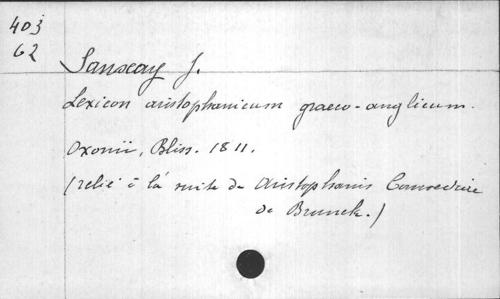 403
62
Sanxay J.
Lexicon aristophanicum graeco-anglicum.
Oxonii, Bliss. 1811.
(relié à la suite de Aristophanis Comoediae
de Brunck.)